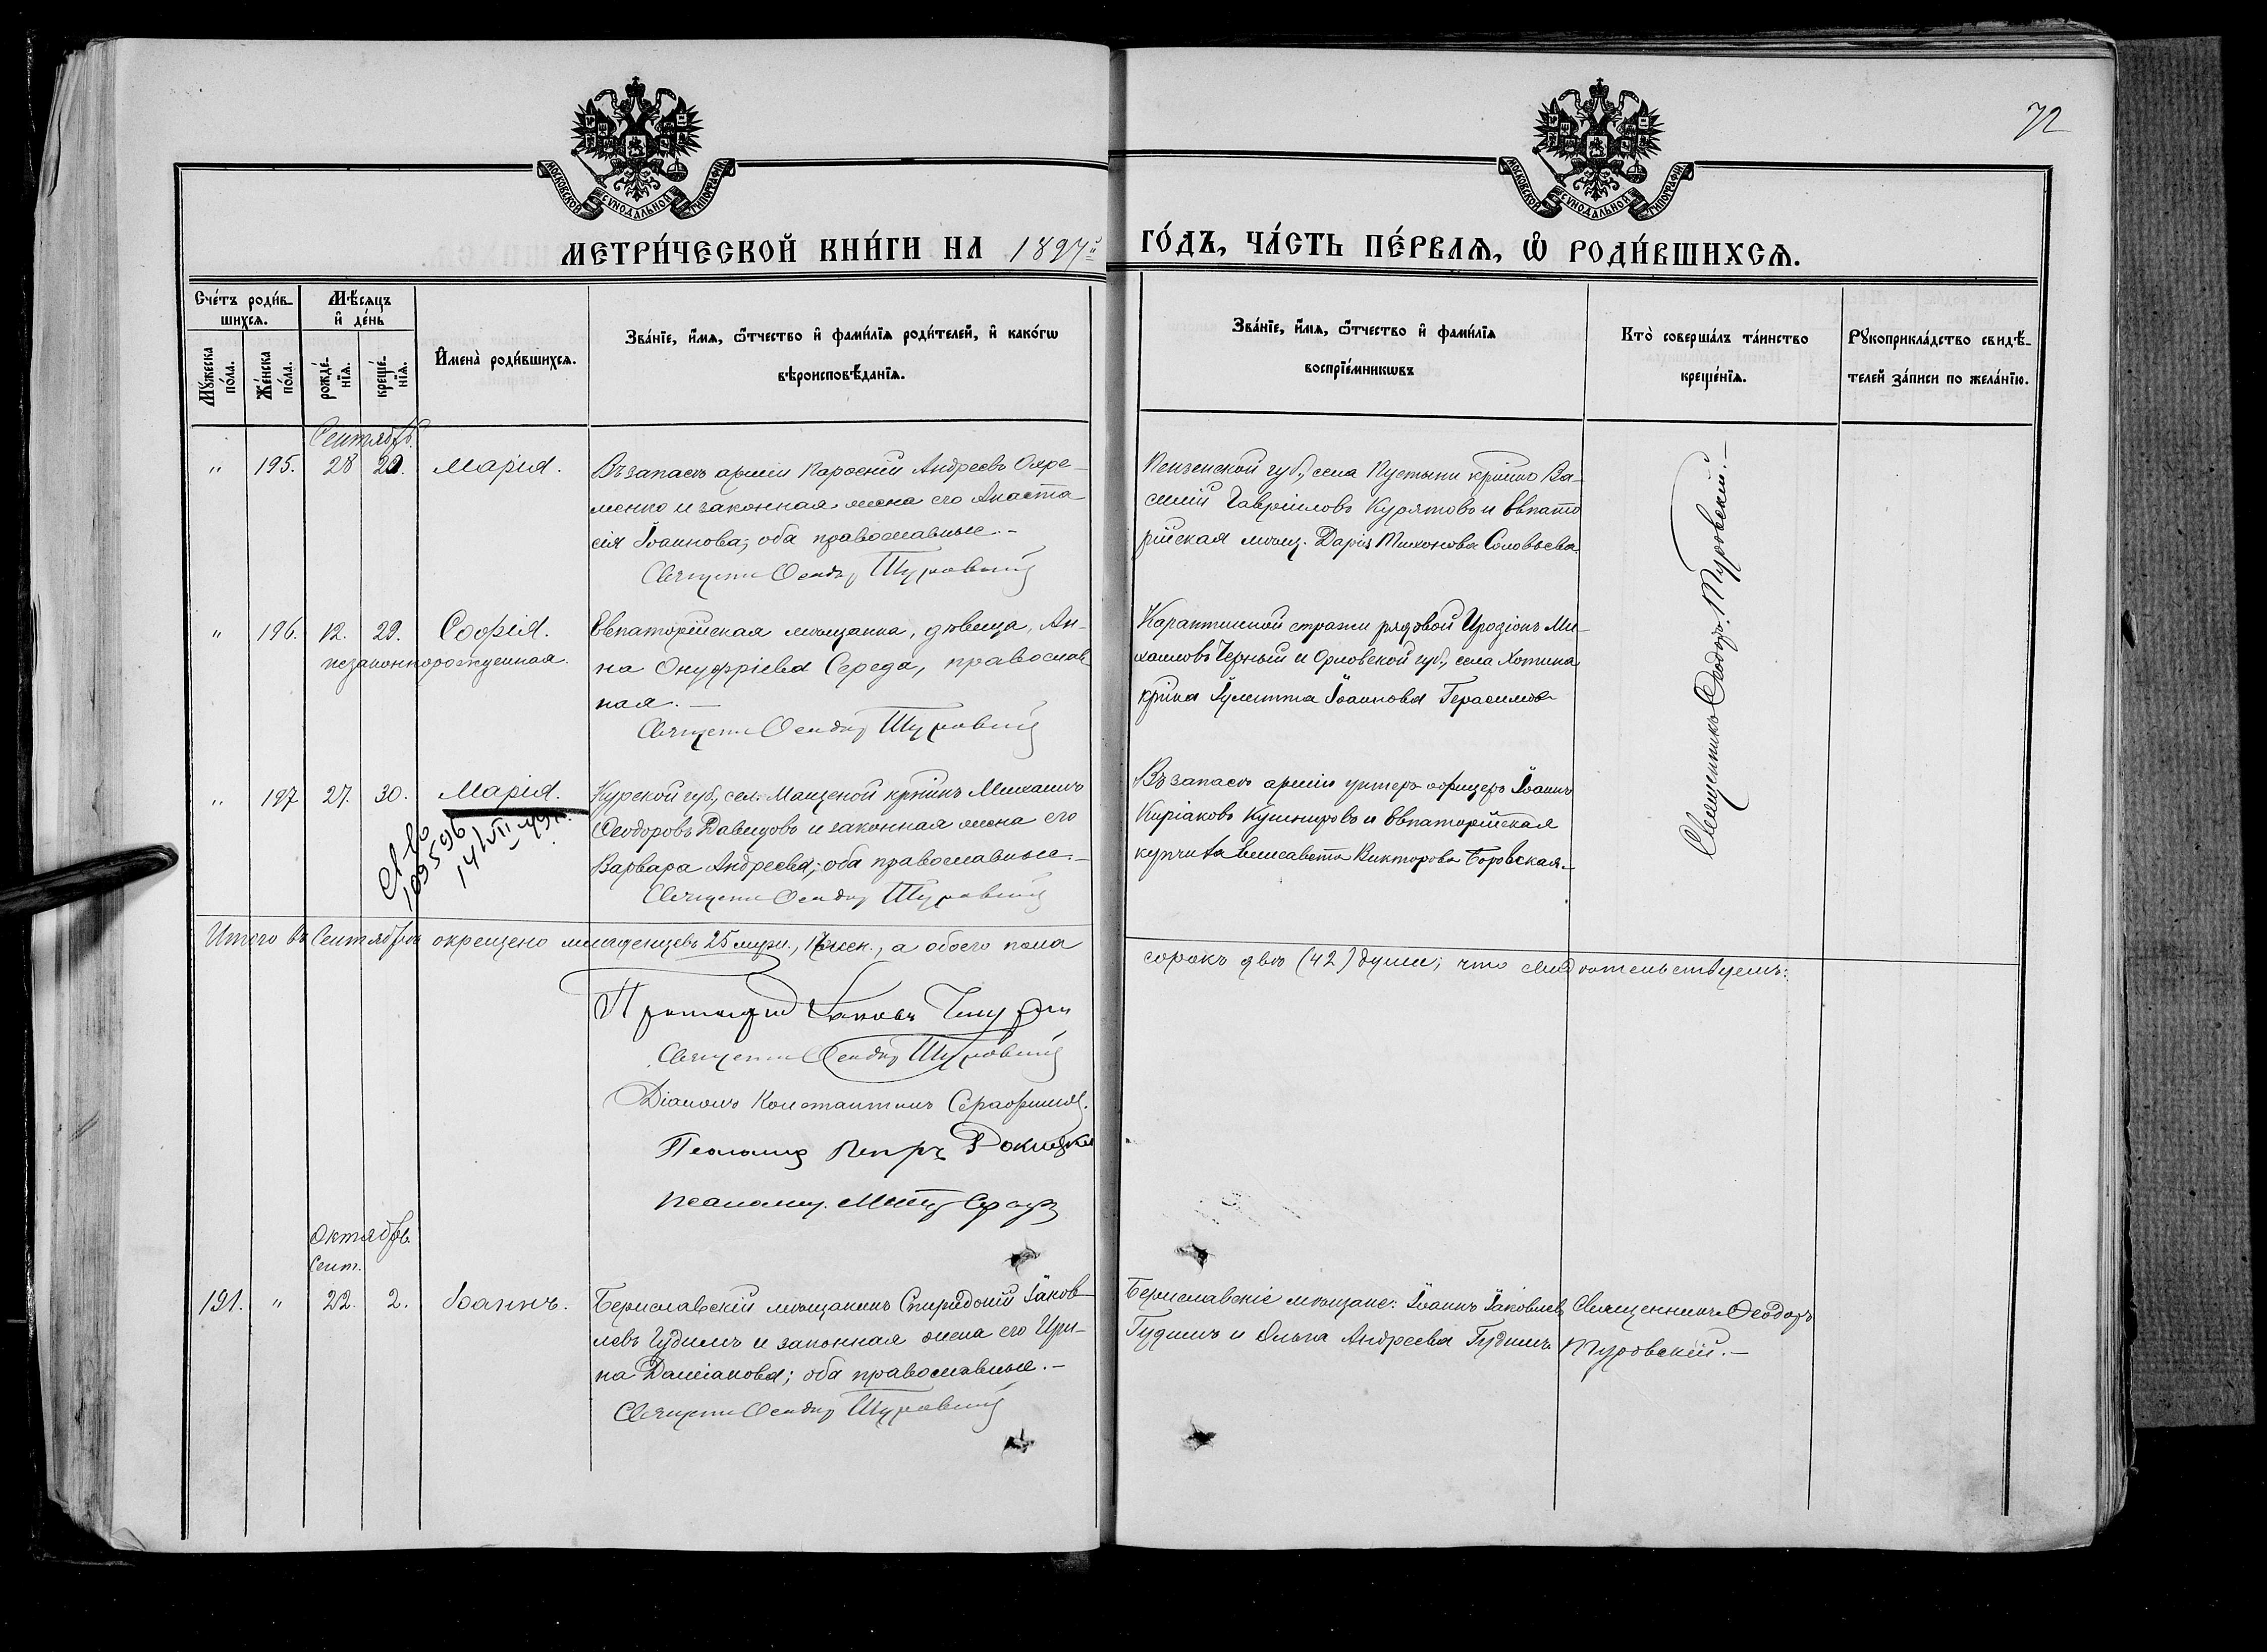 72
МОСКОВСКОЙ СѴНОДАЛЬНОЙ ТИПОГРАФІИ
МОСКОВСКОЙ СѴНОДАЛЬНОЙ ТИПОГРАФІИ
МЕТРИ́ЧЕСКОЙ КНИ́ГИ НА 1897й ГО́ДЪ, ЧА́СТЬ ПЕ́РВАЯ, Ѡ РОДИ́ВШИХСЯ.
Сче́тъ роди́в-
шихся.
Мѣ́сяцъ
и де́нь
Му́жеска по́ла.
Же́нска по́ла.
рожде́-
нія.
креще́-
нія.
Имена̀ роди́вшихся.
Зва́ніе, и́мя, ѻ҆́тчество и фами́лія роди́телей, и како́гѡ
вѣроисповѣ́данія.
Зва́ніе, и́мя, ѻ҆́тчество и фами́лія
воспріе́мникѡвъ
Кто̀ соверша́лъ та́инство
креще́нія.
Рꙋкоприкла́дство свидѣ́-
телей за́писи по жела́нію.
Сентябрь.
" 195. 28 29. Марія.
Въ запасѣ арміи Парѳеній Андреевъ Охре-
менко и законная жена его Анаста-
сія Іоаннова; оба православные.-
Священн Ѳеодор Туровскій
Пензенской губ., села Пустыни крѣнъ Ва-
силій Гавріиловъ Курятовъ и Евпато
рійская мѣщ. Дарія Тихонова Соловьева.
" 196. 12. 29. Софія.
незаконнорожденная.
Евпаторійская мѣщанка, дѣвица, Ан-
на Онуфріева Середа, православ
ная.-
Священн Ѳеодор Туровскій
Карантинной стражи рядовой Иродіонъ Ми-
хаиловъ Черный и Орловской губ., села Хотина
крѣнка Іулитта Іоаннова Герасимова
" 197 27. 30. Марія.
109596
14/VII-49г.
Курской губ., сел. Манzеной крѣнинъ Михаилъ
Ѳеодоровъ Давыдовъ и законная жена его
Варвара Андреева; оба православные.-
Священн Ѳеодор Туровскій
Въ запасѣ арміи унтеръ-офицеръ Іоаннъ
Киріаковъ Кушнировъ и Евпаторійская
купчиха Елисавета Викторова Боровская.-
Священникъ Ѳеодоръ Туровскій.-
Итого въ Сентябрѣ окрещено младенцевъ 25 муж., 17 жен., а обоего пола
сорокъ двѣ (42) души; что свидѣтельствуемъ:
Протоіерей Іаковъ
Священн Ѳеодор Туровскій
Діаконъ Константинъ Серафимов.
Псаломщ Петръ
Псаломщ.
Октябрь.
Сент.
191. " 22. 2. Іоаннъ.
Бериславскій мѣщанинъ Спиридонъ Іаков-
левъ Гудимъ и законная жена его Ири-
на Даміанова; оба православные.-
Священн Ѳеодор Туровскій
Бериславскіе мѣщане: Іоаннъ Іаковлевъ
Гудимъ и Ольга Андреева Гудимъ
Священникъ Ѳеодоръ
Туровскій.-